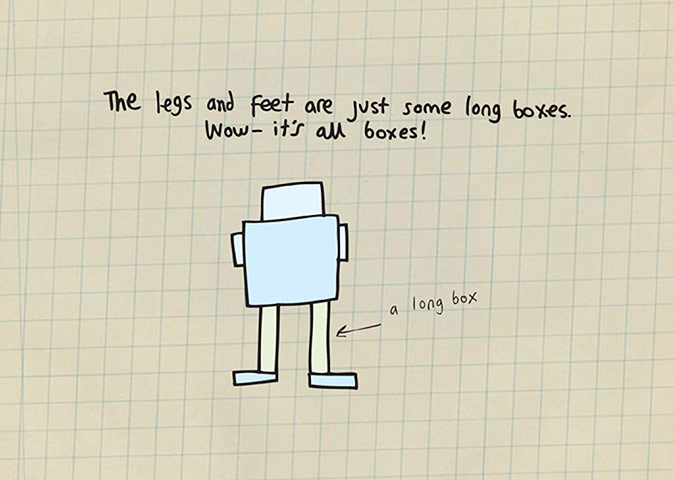 The legs and feet are just some long boxes.
Wow- it's all boxes!
a long box